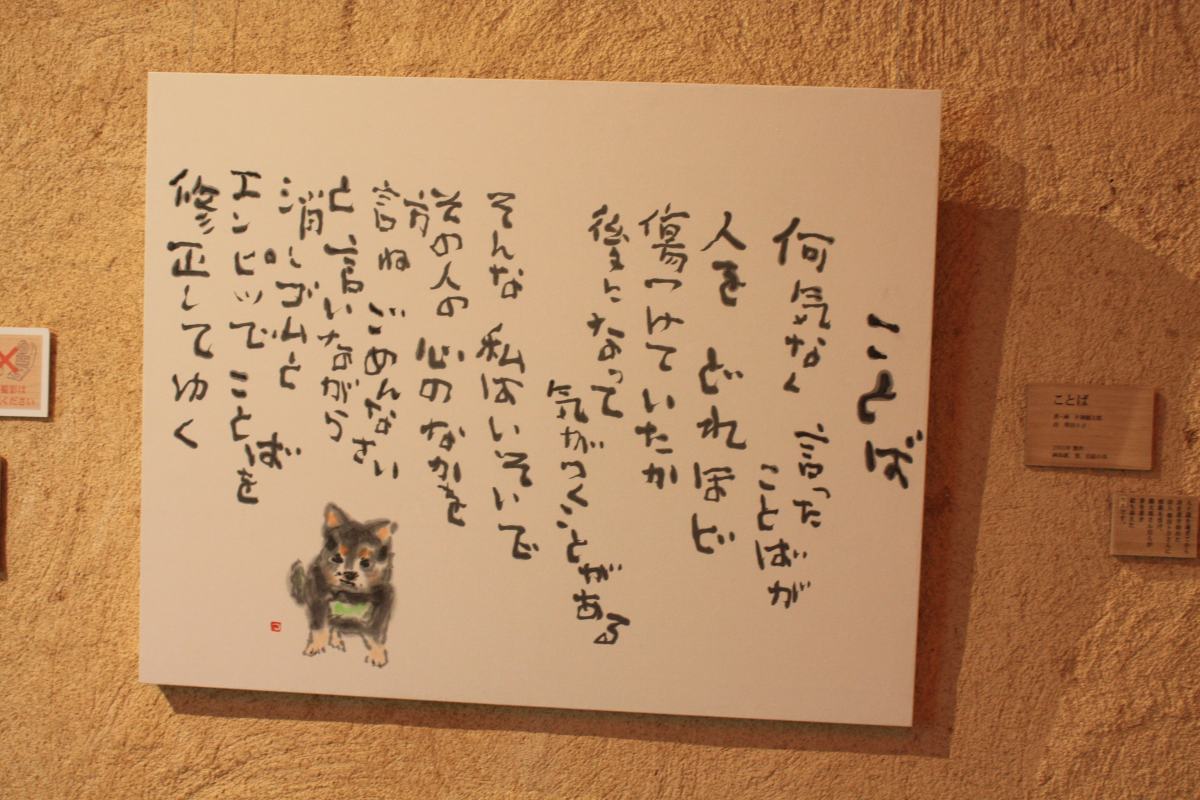 ことば
何気なく 言った
ことばが
人を どれほど
傷つけていたか
後になって
気がつくことがある
そんな 私はいそいで
その人の 心のなかを
訪ね ごめんなさい
と 言いながら
消しゴムと
エンピツで ことばを
修正してゆく
ことば
撮影は
ください。